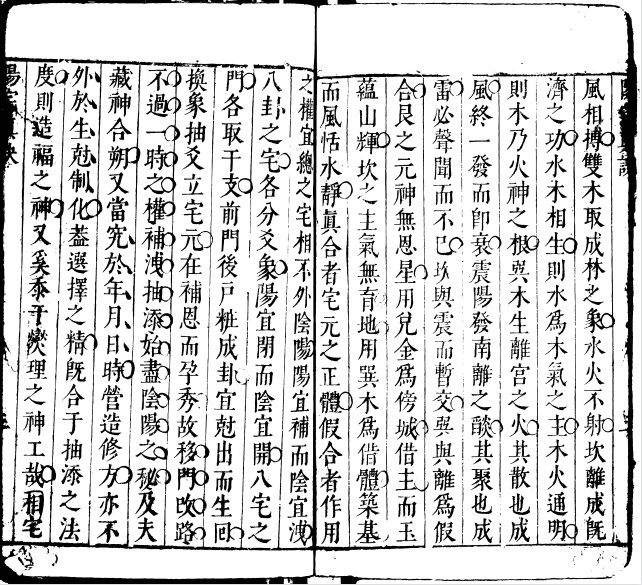 風相搏雙木取成林之象水火不射坎離成旣
濟之功水木相生則水爲木氣之主木火通明
則木乃火神之根巽木生離宮之火其散也成
風終一發而卽衰震陽發南離之𦦨其聚也成
雷必聲聞而不已坎與震而暫交巽與離爲假
合艮之元神無恩星用兌金爲傍城借主而玉
蘊山輝坎之主氣無育地用巽木爲借體築基
而風恬水靜眞合者宅元之正體假合者作用
之權宜總之宅相不外陰陽陽宜補而陰宜洩
八卦之宅各分爻象陽宜閉而陰宜開八宅之
門各取干支前門後戸粧成卦宜尅出而生囘
換象抽爻立宅元在補恩而孕秀故移門改路
不過一時之權補洩抽添始盡陰陽之秘及夫
藏神合朔又當究於年月日時營造修方亦不
外於生尅制化葢選擇之精旣合于抽添之法
度則造福之神又奚忝于爕理之神工哉相宅